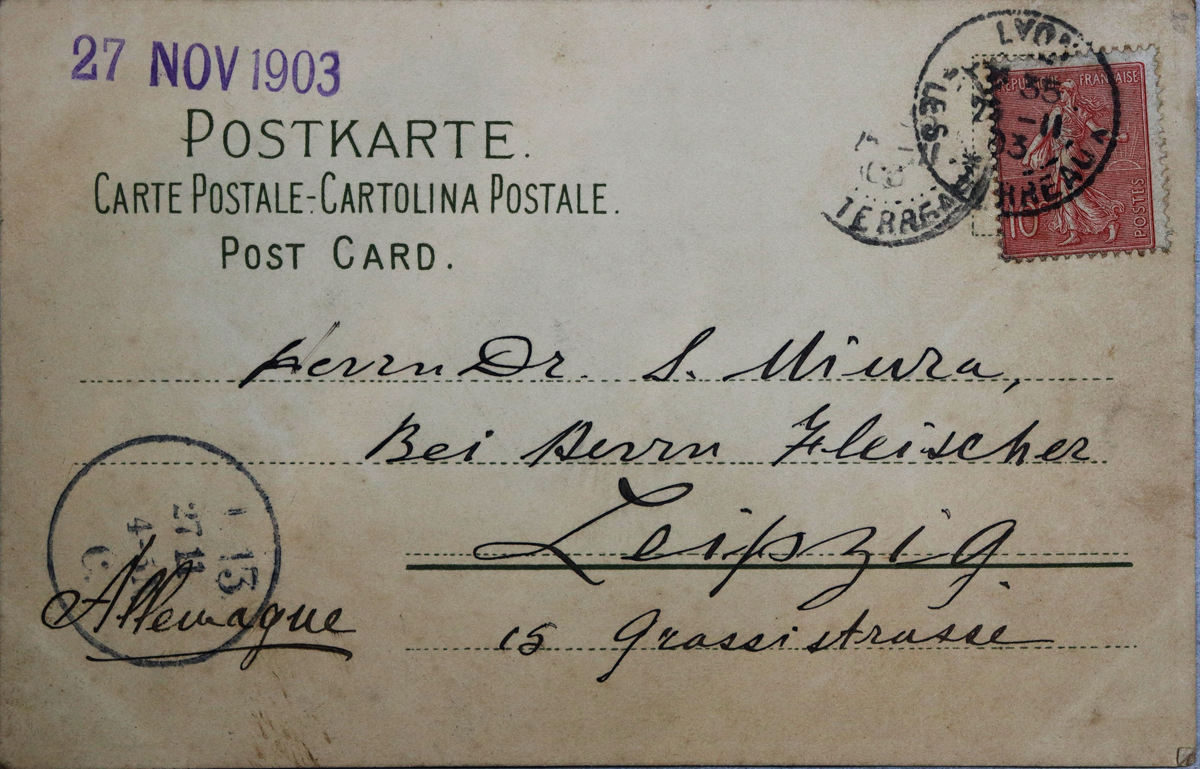 27 NOV 1903
POSTKARTE.
CARTE POSTALE-CARTOLINA POSTALE.
POST CARD.
LYON
LES TERREAUX
35
-11
03
TERREAUX
REPUBLIQUE FRANÇAISE
10
POSTES
Herrn Dr. S. Miura,
Bei Herrn Fleischer
Leipzig
15 Grassistrasse
Allemagne
13
27 11
4-
C.